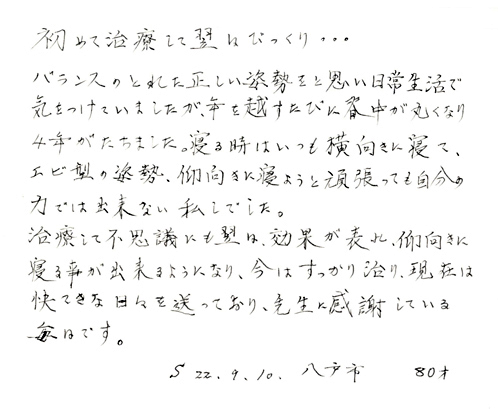 初めて治療して翌日びっくり・・・
バランスのとれた正しい姿勢をと思い日常生活で
気をつけていましたが、年を越すたびに背中が丸くなり
4年がたちました。寝る時はいつも横向きに寝て、
エビ型の姿勢、仰向きに寝ようと頑張っても自分の
力では出来ない私しでした。
治療して不思議にも翌日、効果が表れ、仰向きに
寝る事が出来るようになり、今はすっかり治り、現在は
快てきな日々を送っており、先生に感謝している
毎日です。
S 22.9.10. 八戸市 80才